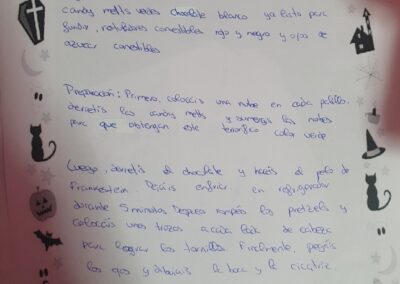 candy melts verdes chocolate blanco ya listo para
fundir, rotuladores comestibles rojo y negro y ojos de
azucar comestibles
Preparación: Primero, colocáis una nube en cada palillo.
derretis los candy melts y sumergis las nubes
para que obtengan este terrorifico color verde
Luego, derretis el chocolate y hacéis el pelo de
Frankestein. Dejáis enfriar en refrigerador
durante 5 minutos Despues rompéis los pretzels y
colocáis unos trozos a cada lado de cabeza
para lograr los tornillos Finalmente, pegáis
los ojos y dibujais la boca y la cicatriz